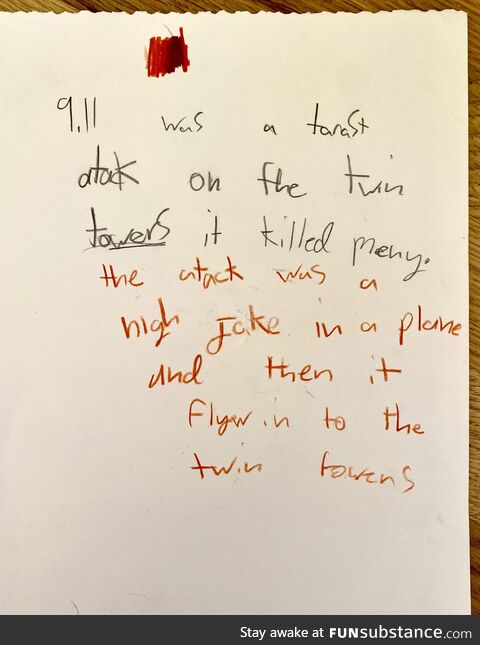 9.11 was a tarast
atack on the twin
towers it killed meny.
the atack was a
high jake in a plane
and then it
flyw in to the
twin towers
Stay awake at FUNsubstance.com